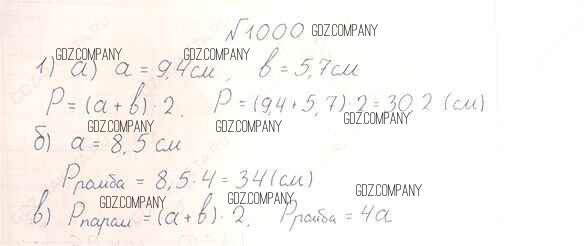 №1000 GDZ.COMPANY
GDZ.COMPANY GDZ.COMPANY
1) а) a = 9,4 см, b = 5,7 см
P = (a + b) · 2. P = (9,4 + 5,7) · 2 = 30 2 (см)
GDZ.COMPANY GDZ.COMPANY GDZ.COMPANY
б) a = 8,5 см
Pромба = 8,5 · 4 = 34 (см)
GDZ.COMPANY GDZ.COMPANY GDZ.COMPANY
в) Pпарал = (a + b) · 2, Pромба = 4a